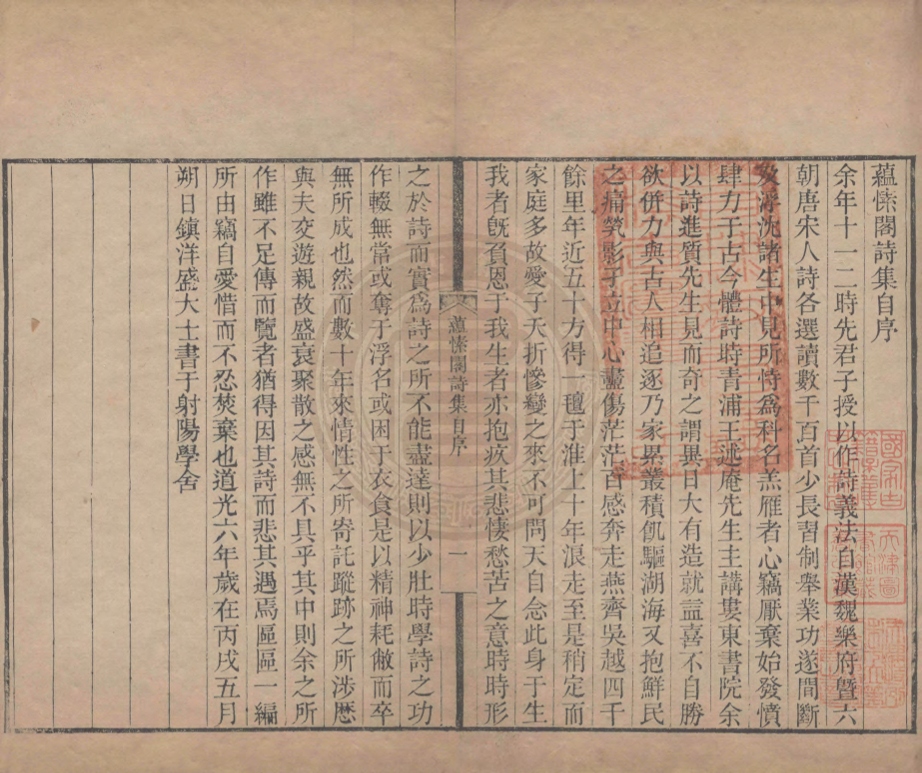 蘊愫閣詩集自序
余年十一二時先君子授以作詩義法自漢魏樂府曁六
朝唐宋人詩各選讀數千百首少長習制舉業功遂間斷
及浮沈諸生中見所恃爲科名羔雁者心竊厭棄始發憤
肆力于古今體詩時青浦王述庵先生主講婁東書院余
以詩進質先生見而奇之謂異日大有造就益喜不自勝
欲併力與古人相追逐乃家累叢積飢驅湖海又抱鮮民
之痛煢影孑立中心盡傷茫茫百感奔走燕齊吳越四千
餘里年近五十方得一氊于淮上十年浪走至是稍定而
家庭多故愛子夭折慘變之來不可問天自念此身于生
我者旣負恩于我生者亦抱疚其悲悽愁苦之意時時形
蘊愫閣詩集 自序 一
之於詩而實爲詩之所不能盡達則以少壯時學詩之功
作輟無當或奪于浮名或困于衣食是以精神耗敝而卒
無所成也然而數十年來情性之所寄託蹤跡之所涉歷
與夫交遊親故盛衰聚散之感無不具乎其中則余之所
作雖不足傳而覽者猶得因其詩而悲其遇焉區區一編
所由竊自愛惜而不忍焚棄也道光六年歲在丙戌五月
朔日鎮洋盛大士書于射陽學舍